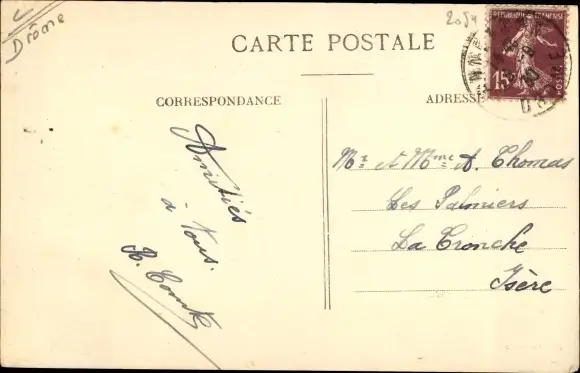 Drôme
2054
CARTE POSTALE
RÉPUBLIQUE FRANÇAISE
15
POSTES
DROME
CORRESPONDANCE
ADRESSE
Amitiés
à tous.
Mr et Mme A. Thomas
Les Palmiers
La Tronche
Isère